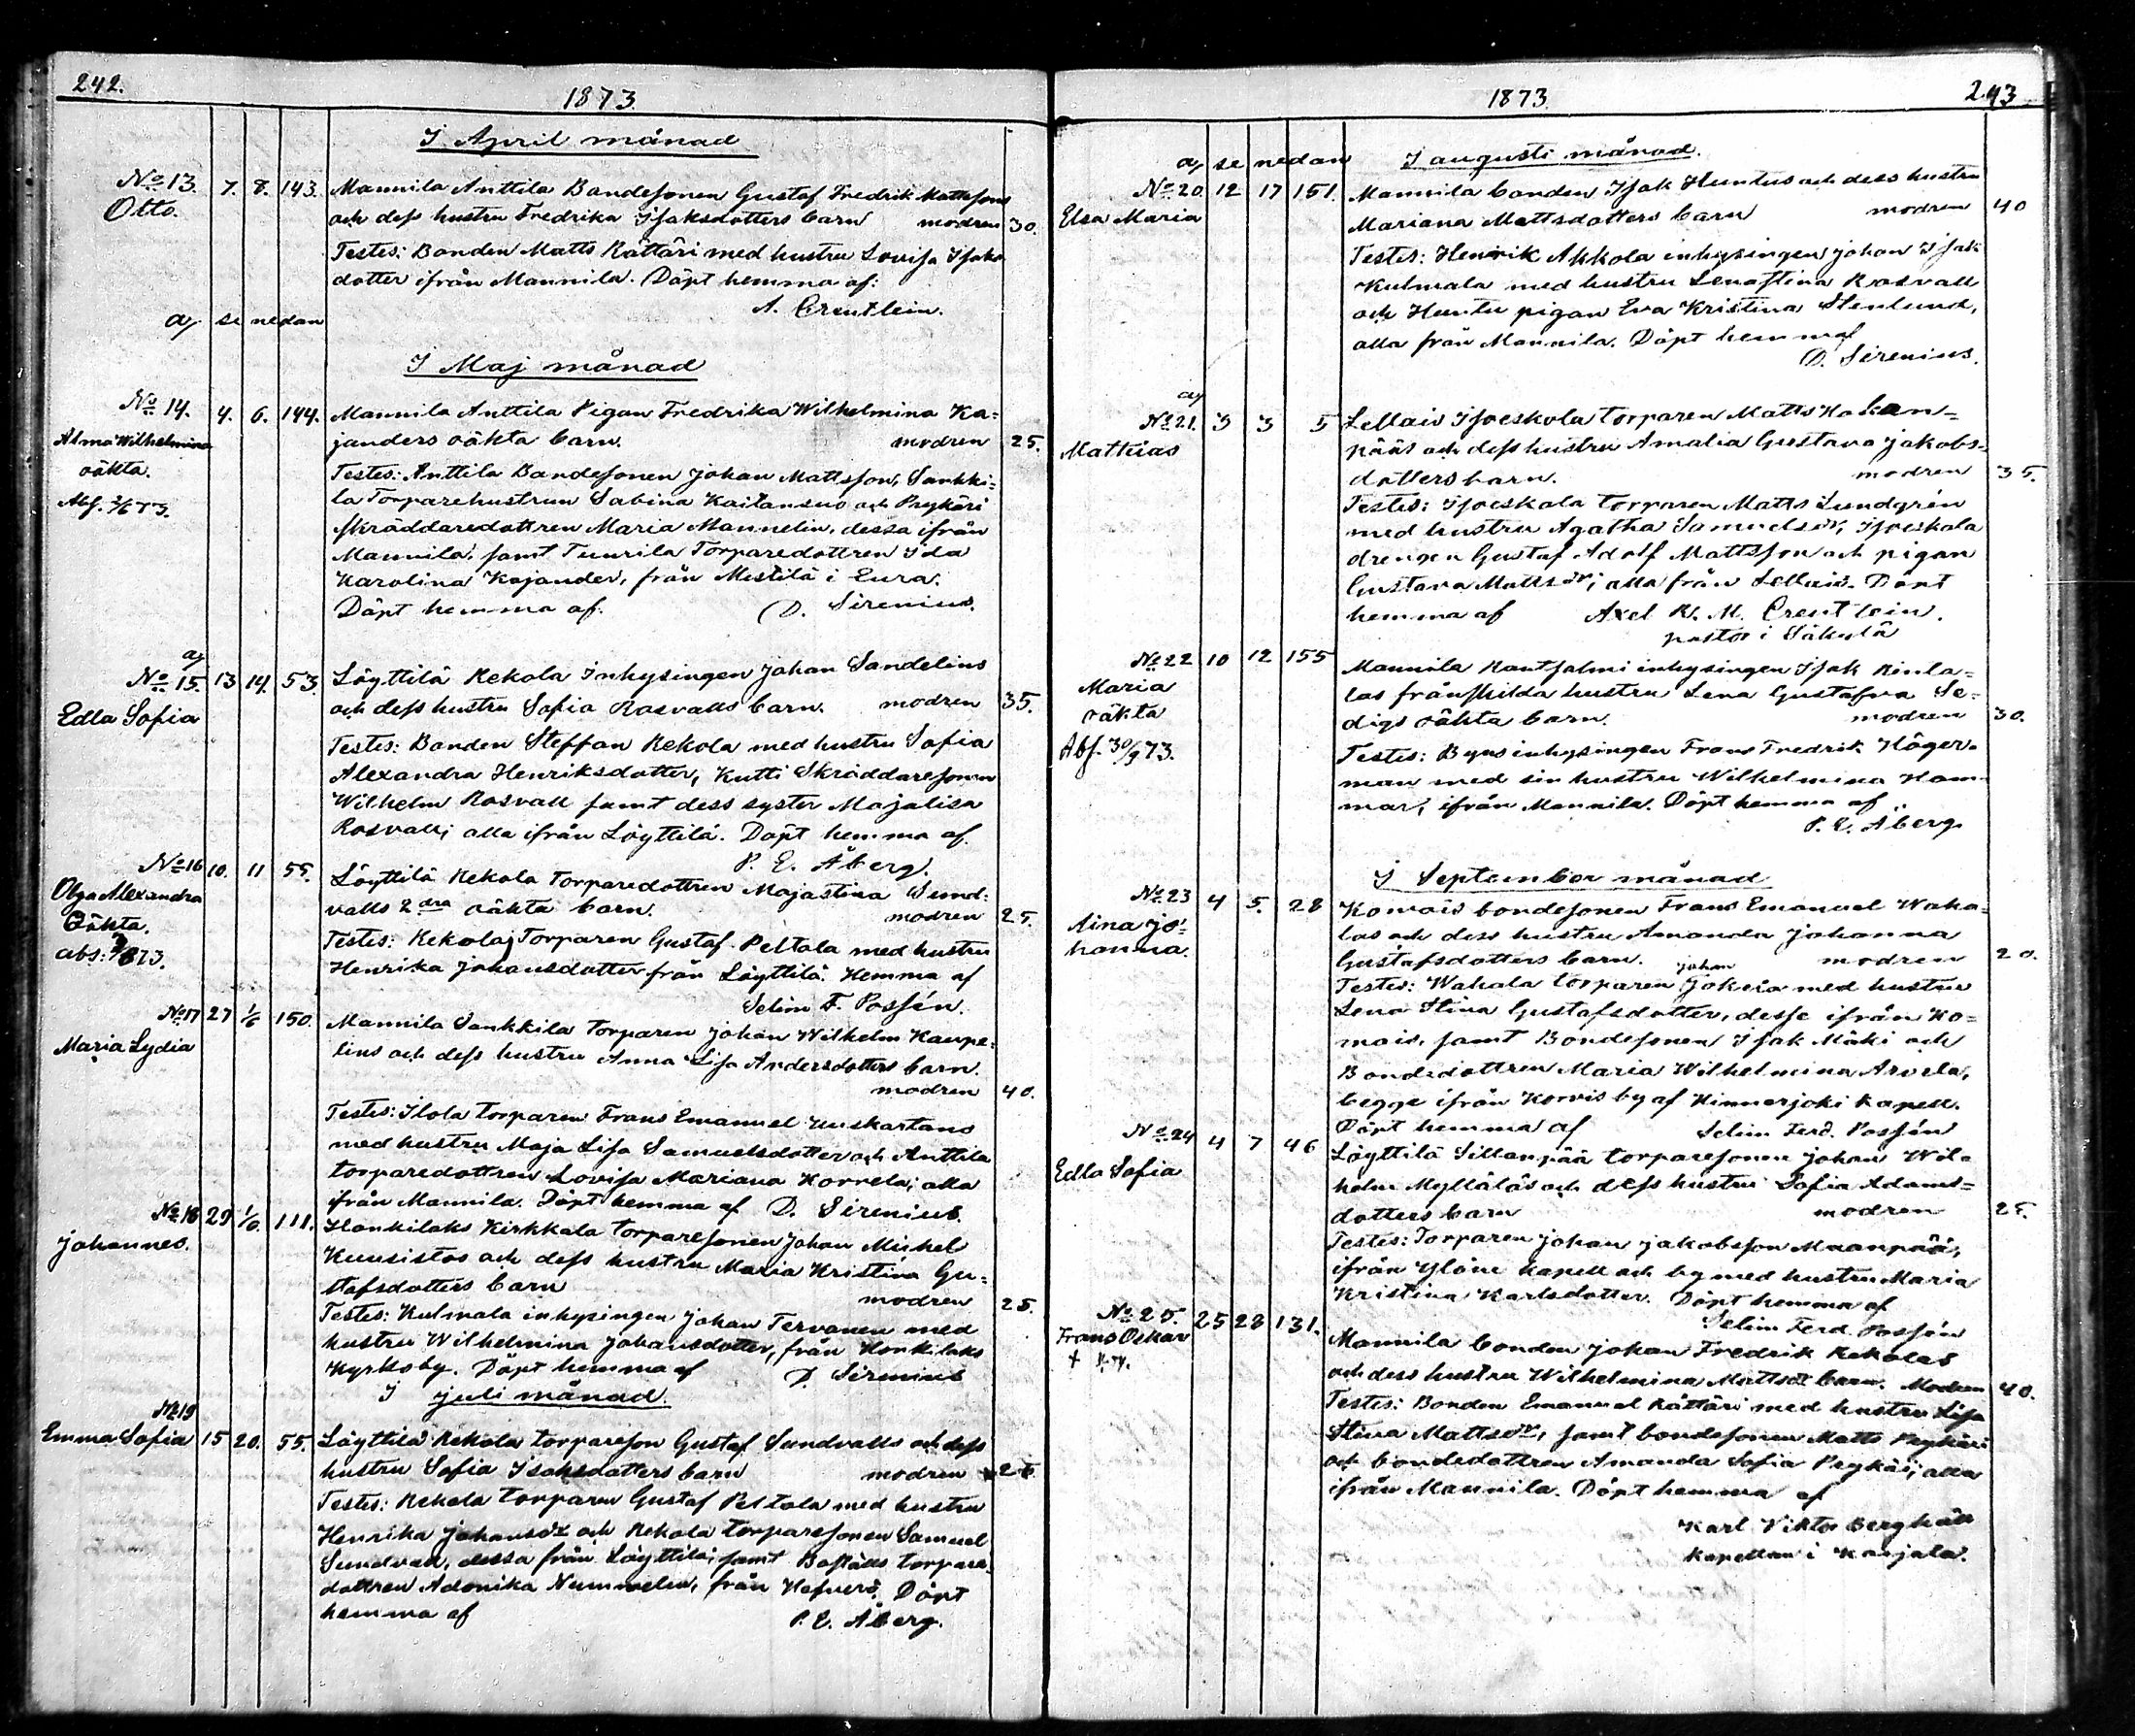 242.
1873
I April månad
No 13. 7. 8. 143. Mannila Anttila Bondesonen Gustaf Fredrik Mattssons
Otto. och dess hustru Fredrika Isaksdotters barn modren 30.
Testes: Bonden Matts Rättäri med hustru Lovisa Isaks
dotter ifrån Mannila. Döpt hemma af:
A. Creutlein.
a) se nedan
I Maj månad
No 14. 4. 6. 144. Mannila Anttila Pigan Fredrika Wilhelmina Ka=
Alma Wilhelmina janders oäkta barn. modren 25.
oäkta. Testes: Anttila Bondesonen Johan Mattsson, Sankki=
la Torparehustrun Sabina Kaitansuo och Prykäri
skräddaredottren Maria Mannelin, dessa ifrån
Mannila, samt Tuurila Torparedottren Ida
Karolina Kajander, från Mestilä i Eura.
Döpt hemma af. D. Sirenius.
a)
No 15. 13 14. 53. Löyttilä Rekola Inhysingen Johan Sandelins
Edla Sofia och dess hustru Sofia Rosvalls barn. modren 35.
Testes: Bonden Steffan Rekola med hustru Sofia
Alexandra Henriksdotter, Kutti Skräddaresonen
Wilhelm Rosvall samt dess syster Majalisa
Rosvall; alla ifrån Löyttilä. Döpt hemma af
P. E. Åberg.
No 16 10. 11 55. Löyttilä Rekola Torparedottren Majastina Sund=
Olga Alexandra valls 2dra oäkta barn. modren 25.
Oäkta. Testes: Rekola Torparen Gustaf Peltola med hustru
Henrika Johansdotter från Löyttilä. Hemma af
Selim F. Possén.
No 17 27 1/6 150. Mannila Sankkila torparen Johan Wilhelm Kaupe=
Maria Lydia lins och dess hustru Anna Lisa Andersdotters barn.
modren 40.
Testes: Ilola torparen Frans Emanuel Uuskartano
med hustru Maja Lisa Samuelsdotter och Anttila
torparedottren Lovisa Mariana Horrela; alla
ifrån Mannila. Döpt hemma af D. Sirenius.
No 18 29 1/6. 111. Honkilaks Kirkkala torparesonen Johan Mickel
Johannes. Kuusistos och dess hustru Maria Kristina Gu=
stafsdotters barn modren 25.
Testes: Kulmala inhysingen Johan Tervanen med
hustru Wilhelmina Johansdotter, från Honkilaks
Kyrkoby. Döpt hemma af D. Sirenius
I juli månad.
No 19
Emma Sofia 15 20. 55. Löyttilä Rekola torpareson Gustaf Sundvalls och dess
hustru Sofia Isaksdotters barn modren 25
Testes: Rekola torparen Gustaf Peltola med hustru
Henrika Johansdr och Rekola torparesonen Samuel
Sundvall, dessa från Löyttilä; samt Boställs torpare=
dottren Adonika Nummelin, från Hefverö. Döpt
hemma af P. E. Åberg.
1873.
243
a) se nedan I augusti månad.
No 20 12 17 151. Mannila bonden Isak Huntus och dess hustru
Elsa Maria Mariana Mattsdotters barn modren 40
Testes: Henrik Akkola inhysingen Johan Isak
Kulmala med hustru Lenastina Rosvall
och Huntu pigan Eva Kristina Stenlund,
alla från Mannila. Döpt hemma af
D. Sirenius.
a)
No 21. 3 3 5 Lellais Isoeskola torparen Matts Hakan=
Matthias pääs och dess hustru Amalia Gustava Jakobs=
dotters barn. modren 35.
Testes: Isoeskola torparen Matts Lundgrén
med hustru Agatha Samuelsdr, Isoeskola
drengen Gustaf Adolf Mattsson och pigan
Gustava Mattsdr; alla från Lellais. Döpt
hemma af Axel R. M. Creutlein.
pastor i Säkylä
No 22 10 12 155 Mannila Rantsalmi inhysingen Isak Rinta=
Maria las frånskilda hustru Lena Gustafva Se=
oäkta digs oäkta barn. modren 30.
Abs. 30/9 73. Testes: Byns inhysingen Frans Fredrik Höger=
man med sin hustru Wilhelmina Ham=
mar, ifrån Mannila. Döpt hemma af
P. E. Åberg.
I September månad
No 23 4 5. 28 Korvois bondesonen Frans Emanuel Waha=
Aina Jo= las och dess hustru Amanda Johanna
hanna. Gustafsdotters barn. modren 20.
Testes: Wahala torparen Johan Jokela med hustru
Lena Stina Gustafsdotter, desse ifrån Ko=
mois, samt Bondesonen Isak Mäki och
Bondedottren Maria Wilhelmina Arvela,
begge ifrån Korvis by af Hinnerjoki Kapell.
Döpt hemma af Selim Ferd. Possén
No 24 4 7 46 Löyttilä Sillanpää torparesonen Johan Wil=
Edla Sofia helm Mylläläs och dess hustru Sofia Adams=
dotters barn modren 25.
Testes: Torparen Johan Jakobsson Maanpää,
ifrån Ylöne kapell och by med hustru Maria
Kristina Karlsdotter. Döpt hemma af
Selim Ferd. Possén
No 25. 25 28 131. Mannila bonden Johan Fredrik Rekolas
Frans Oskar och dess hustru Wilhelmina Mattsdr barn. Modren 40.
Testes: Bonden Emanuel Rättäri med hustru Lisa
Stina Mattsdr, samt bondesonen Matts Prykäri
och bondedottren Amanda Sofia Prykäri; alla
ifrån Mannila. Döpt hemma af
Karl Viktor Berghäll
kapellan i Karjala.